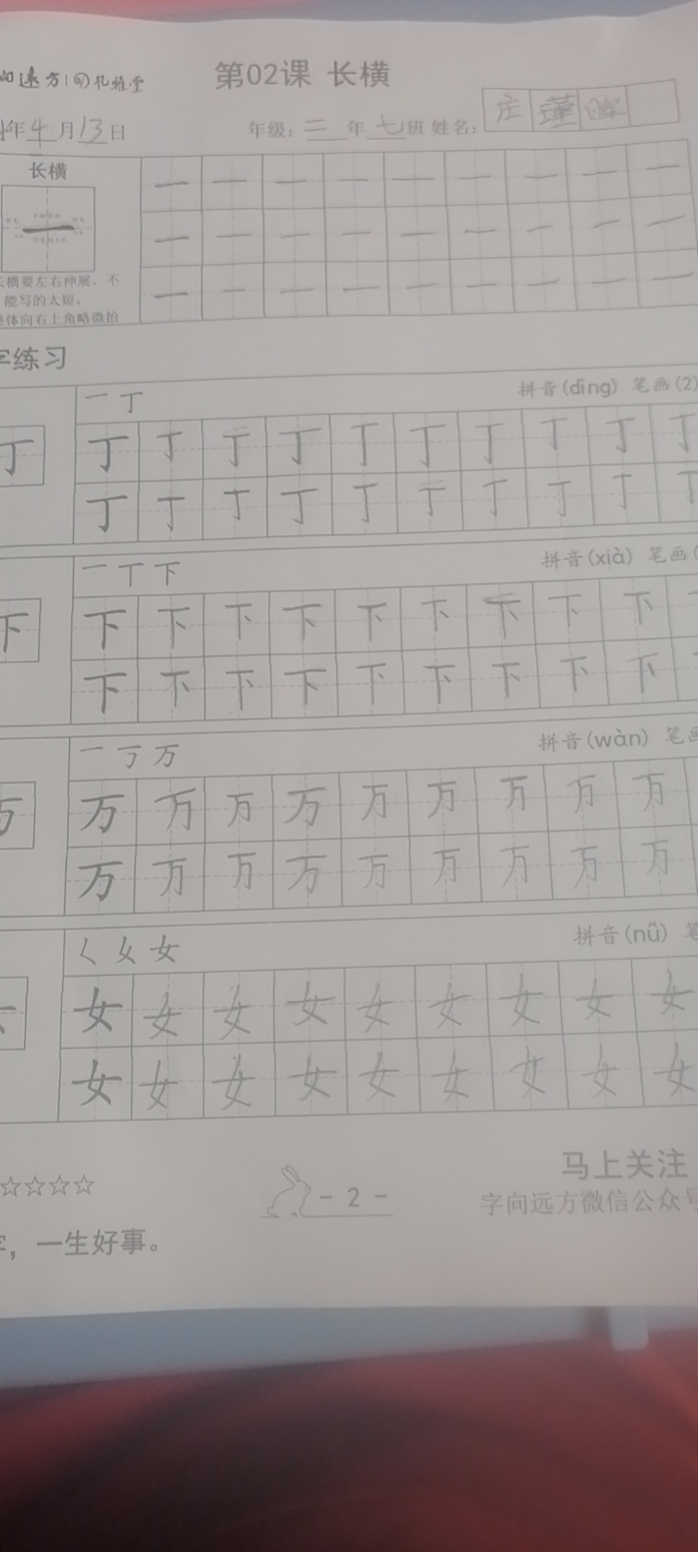 向远方 孔雅堂
第02课 长横
年4月13日 年级：三年七班 姓名：
长横
一 一 一 一 一 一 一 一 一
一 一 一 一 一 一 一 一 一
一 一 一 一 一 一 一 一 一
长横要左右伸展，不
能写的太短。
整体向右上角略微抬
字练习
一 丁 拼音(dīng) 笔画(2)
丁 丁 丁 丁 丁 丁 丁 丁 丁 丁 丁
丁 丁 丁 丁 丁 丁 丁 丁 丁 丁
一 丅 下 拼音(xià) 笔画(
下 下 下 下 下 下 下 下 下 下
下 下 下 下 下 下 下 下 下
一 丂 万 拼音(wàn) 笔画
万 万 万 万 万 万 万 万 万 万
万 万 万 万 万 万 万 万 万
く 女 女 拼音(nǚ) 笔
女 女 女 女 女 女 女 女 女
女 女 女 女 女 女 女 女 女
☆☆☆☆ - 2 - 马上关注
字向远方微信公众号
字，一生好事。